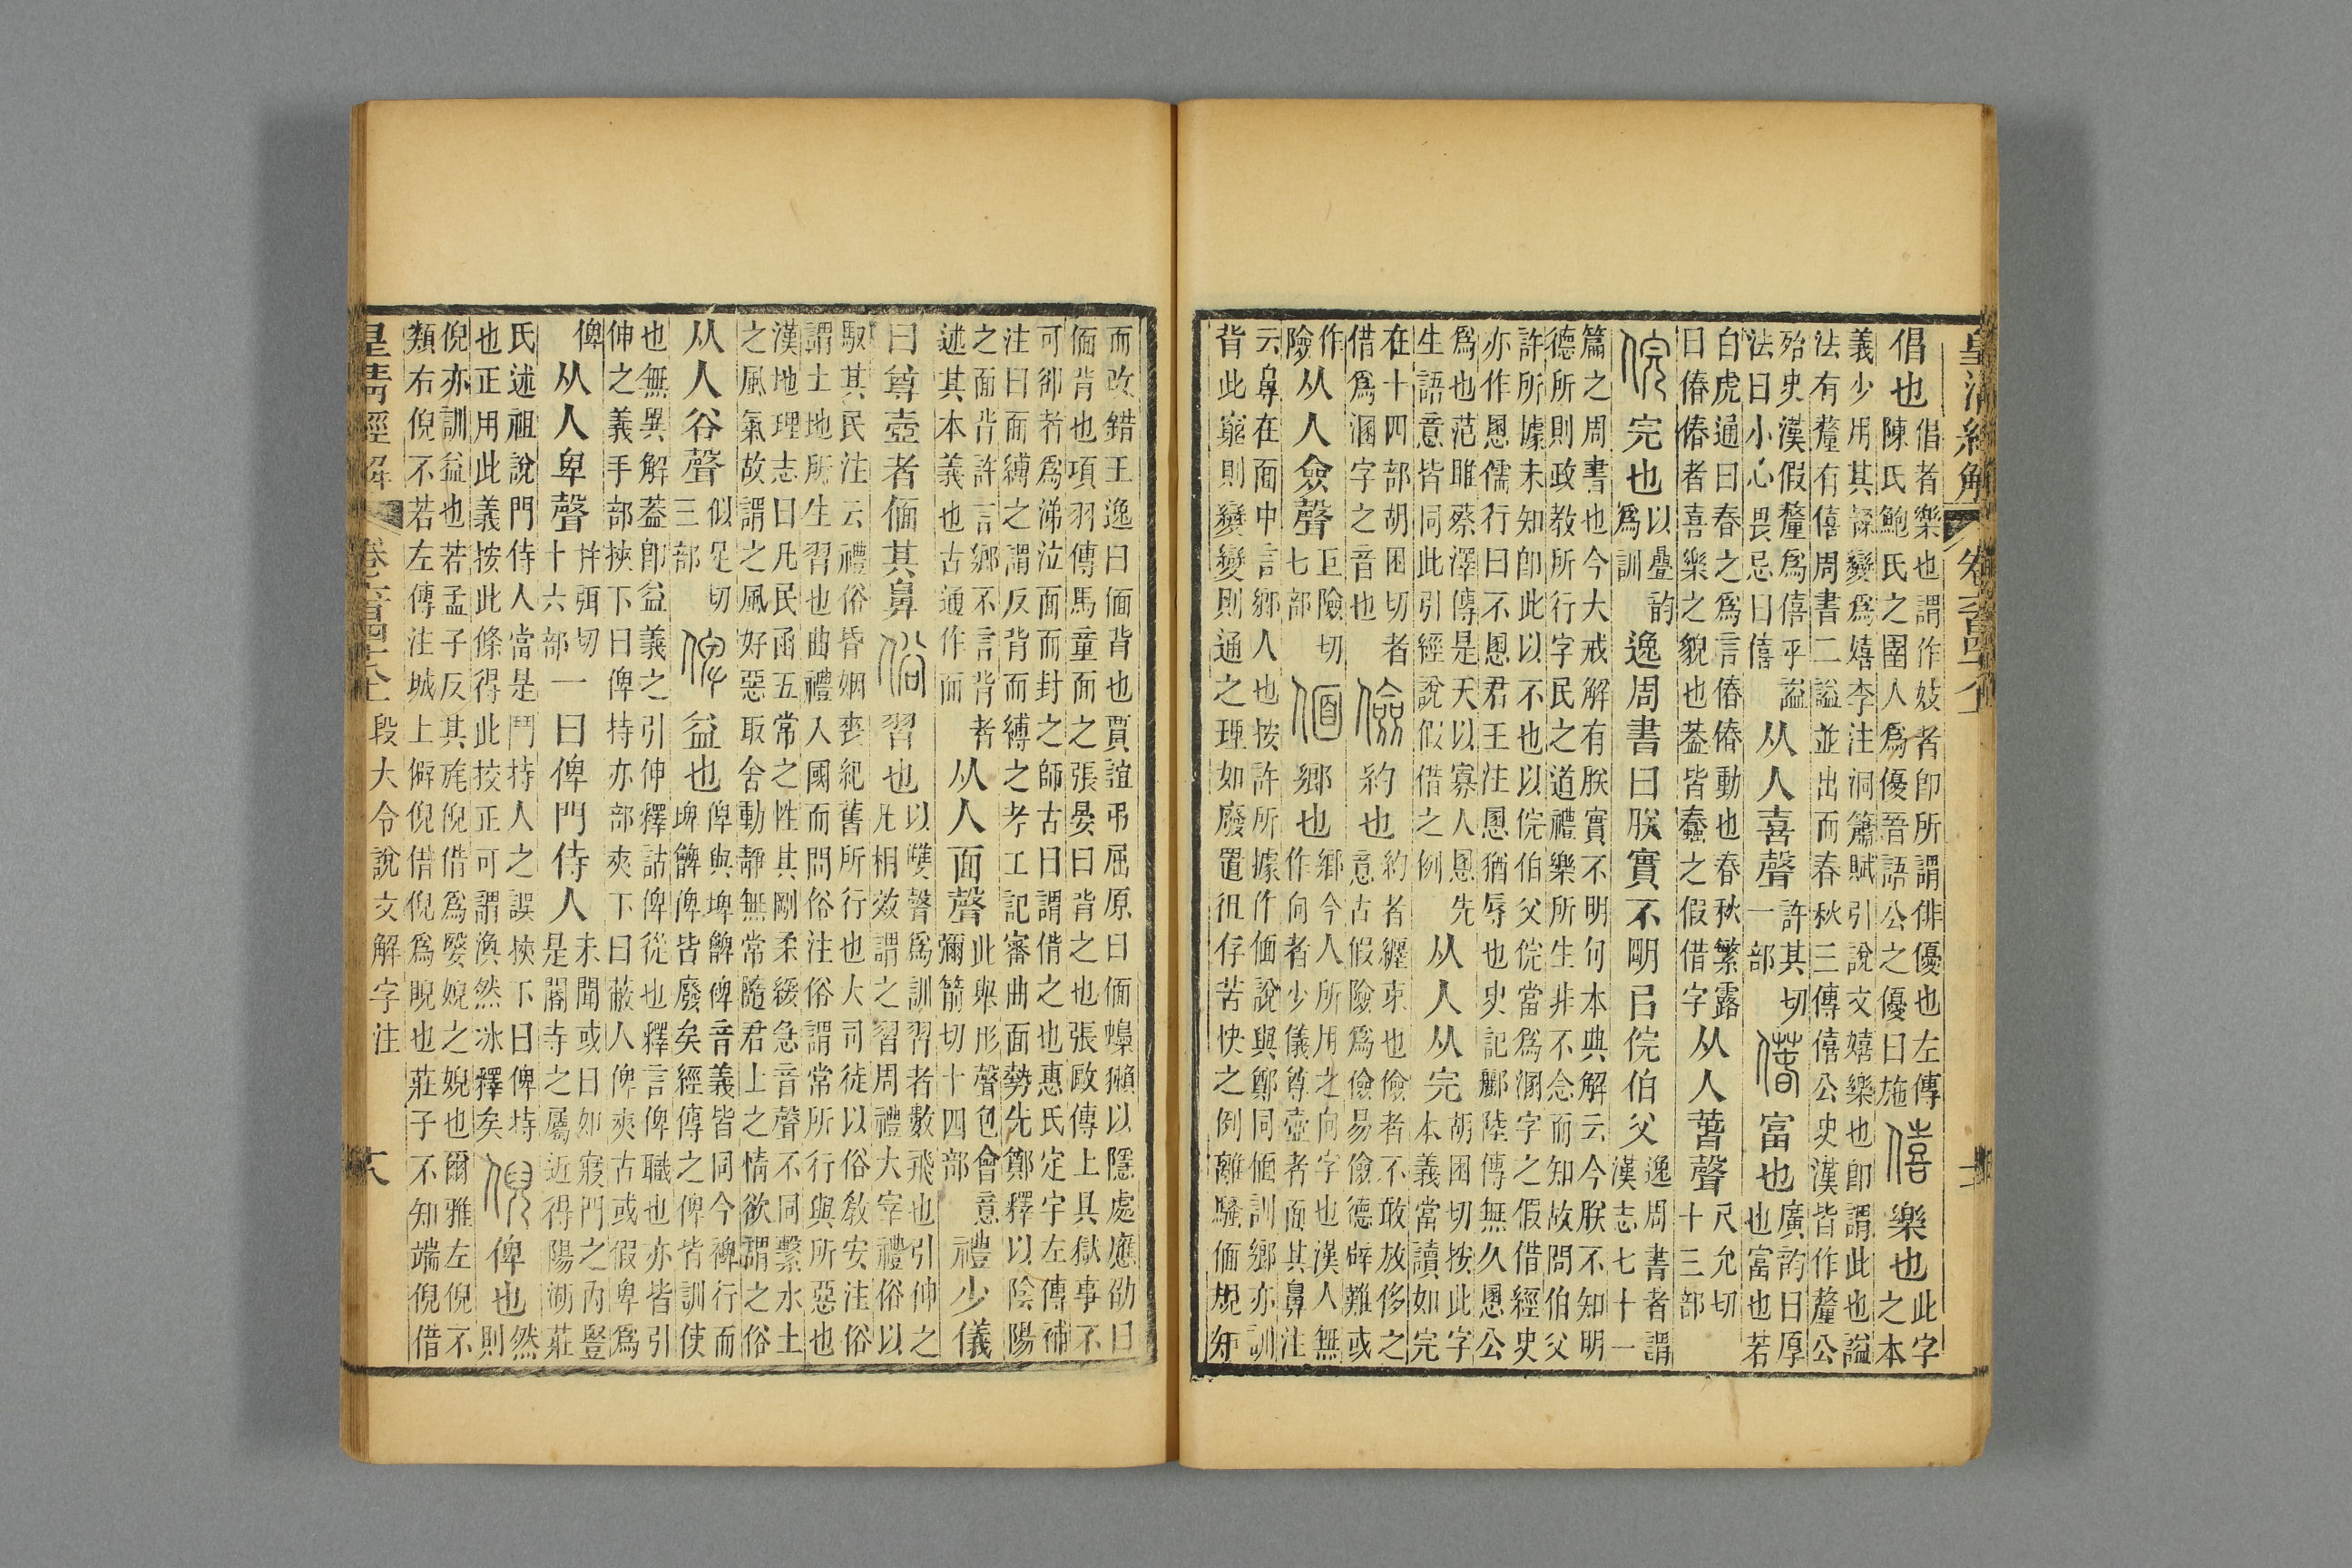 皇清經解 卷六百四十八上
倡也
倡者樂也謂作妓者即所謂俳優也左傳
陳氏鮑氏之圉人爲優晉語公之優曰施
僖樂也
此字
之本
義少用其變爲嬉李注洞簫賦引說文嬉樂也即謂此也謚
法有釐有僖周書二謚並出而春秋三傳僖公史漢皆作釐公
殆史漢假釐爲僖乎謚
法曰小心畏忌曰僖
从人喜聲
許其切
一部
偆富也
廣韵曰厚
也富也若
白虎通曰春之爲言偆偆動也春秋繁露
曰偆偆者喜樂之貌也葢皆蠢之假借字
从人萅聲
尺允切
十三部
俒完也
以疊韵
爲訓
逸周書曰朕實不朙㠯俒伯父
逸周書者謂
漢志七十一
篇之周書也今大戒解有朕實不明句本典解云今朕不知明
德所則政教所行字民之道禮樂所生非不念而知故問伯父
許所據未知卽此以不也以俒伯父俒當爲溷字之假借經史
亦作慁儒行曰不慁君王注慁猶辱也史記酈陸傳無久慁公
爲也范睢蔡澤傳是天以寡人慁先
生語意皆同此引經說假借之例
从人从完
胡困切按此字
本義當讀如完
在十四部胡困切者
借爲溷字之音也
儉約也
約者纏束也儉者不敢放侈之
意古假險爲儉易儉德辟難或
作
險
从人僉聲
巨險切
七部
偭鄉也
鄉今人所用之向字也漢人無
作向者少儀尊壺者面其鼻注
云鼻在面中言鄉人也按許所據作偭說與鄭同偭訓鄉亦訓
背此窮則變變則通之理如廢置徂存苦快之例離騷偭規矩
而改錯王逸曰偭背也賈誼弔屈原曰偭蟂獺以隱處應劭曰
偭背也項羽傳馬童面之張晏曰背之也張敺傳上具獄事不
可卻者爲涕泣面而封之師古曰謂偝之也惠氏定宇左傳補
注曰面縛之謂反背而縛之考工記審曲面勢先鄭釋以陰陽
之面背許言鄉不言背者
述其本義也古通作面
从人面聲
此舉形聲包會意
彌箭切十四部
禮少儀
曰尊壺者偭其鼻
俗習也
以雙聲爲訓習者數飛也引伸之
凡相效謂之習周禮大宰禮俗以
馭其民注云禮俗昏姻喪紀舊所行也大司徒以俗敎安注俗
謂土地所生習也曲禮入國而問俗注俗謂常所行與所惡也
漢地理志曰凡民函五常之性其剛柔緩急音聲不同繫水土
之風氣故謂之風好惡取舍動靜無常隨君上之情欲謂之俗
从人谷聲
似足切
三部
俾益也
俾與埤䩛裨音義皆同今裨行而
埤䩛俾皆廢矣經傳之俾皆訓使
也無異解葢卽益義之引伸釋詁俾從也釋言俾職也亦皆引
伸之義手部挾下曰俾持亦部夾下曰蔽人俾夾古或假卑爲
俾
从人卑聲
幷弭切
十六部
一曰俾門侍人
未聞或曰如寢門之內豎
是閽寺之屬近得陽湖莊
氏述祖說門侍人當是鬥持人之誤挾下曰俾持
也正用此義按此條得此挍正可謂渙然冰釋矣
倪俾也
然
則
倪亦訓益也若孟子反其旄倪倪借爲嫛婗之婗也爾雅左倪不
類右倪不若左傳注城上僻倪借倪爲睨也莊子不知端倪借
皇清經解 卷六百四十八上 段大令說文解字注